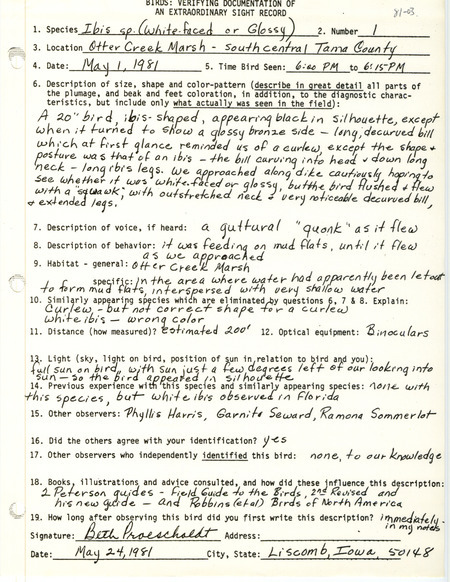 BIRDS: VERIFYING DOCUMENTATION OF
AN EXTRAORDINARY SIGHT RECORD
81-03
1. Species Ibis sp. (white-faced or Glossy) 2. Number 1
3. Location Otter Creek Marsh - south central Tama County
4. Date: May 1, 1981 5. Time Bird Seen: 6:00 PM to 6:15 PM
6. Description of size, shape and color-pattern (describe in great detail all parts of
the plumage, and beak and feet coloration, in addition, to the diagnostic charac-
teristics, but include only what actually was seen in the field):
A 20" bird, ibis-shaped, appearing black in silhouette, except
when it turned to show a glossy bronze side - long, decurved bill
which at first glance reminded us of a curlew, except the shape &
posture was that of an ibis - the bill curving into head & down long
neck - long ibis legs. We approached along dike cautiously hoping to
see whether it was white-faced or glossy, but the bird flushed & flew
with a "squawk", with outstretched neck & very noticeable decurved bill,
& extended legs.
7. Description of voice, if heard: a guttural "quonk" as it flew
8. Description of behavior: it was feeding on mud flats, until it flew
as we approached
9. Habitat - general: Otter Creek Marsh
specific: In the area where water had apparently been let out
to form mud flats, interspersed with very shallow water
10. Similarly appearing species which are eliminated by questions 6, 7 & 8. Explain:
Curlew - but not correct shape for a curlew
white ibis - wrong color
11. Distance (how measured)? estimated 200' 12. Optical equipment: Binoculars
13. Light (sky, light on bird, position of sun in relation to bird and you):
full sun on bird, with sun just a few degrees left of our looking into
sun - so the bird appeared in silhouette
14. Previous experience with this species and similarly appearing species: none with
this species, but white ibis observed in Florida
15. Other observers: Phyllis Harris, Garnita Seward, Ramona Sommerlot
16. Did the others agree with your identification? yes
17. Other observers who independently identified this bird: none, to our knowledge
18. Books, illustrations and advice consulted, and how did these influence this description:
2 Peterson guides - Field Guide to the Birds, 2nd Revised and
his new guide - and Robbins (et al) Birds of North America
19. How long after observing this bird did you first write this description? immediately -
in my notes
Signature: Beth Proescholdt Address:
Date: May 24, 1981 City, State: Liscomb, Iowa, 50148